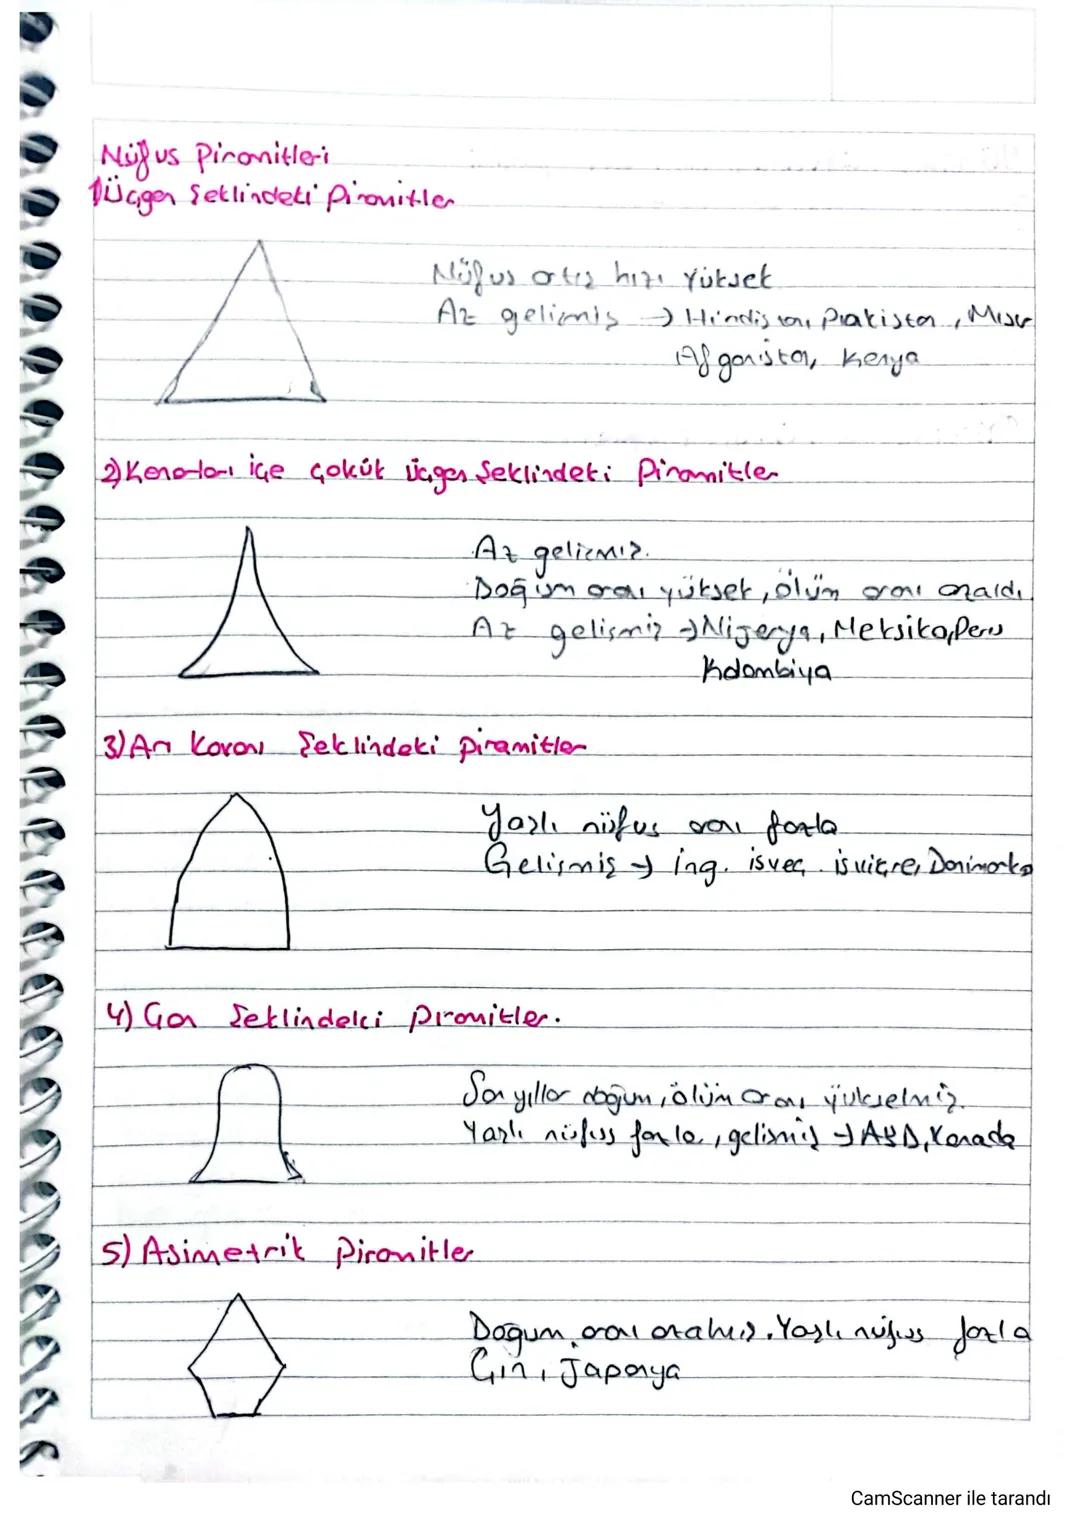 Nüfus Piramitleri
1) Üçgen Şeklindeki Piramitler
Nüfus artış hızı Yüksek
Az gelişmiş → Hindistan, Pakistan, Mısır
Afganistan, Kenya
2) Kenarları içe çökük üçgen Şeklindeki Piramitler
Az gelişmiş.
Doğum oranı yüksek, ölüm oranı azaldı
Az gelişmiş → Nijerya, Meksika, Peru
Kolombiya
3) Arı Kovanı Şeklindeki piramitler
Yaşlı nüfus oranı fazla
Gelişmiş → ing. isveç. isviçre, Danimarka
4) Çan Şeklindeki piramitler.
Son yıllar doğum, ölüm oranı yükselmiş.
Yaşlı nüfus fazla, gelişmiş → ABD, Kanada
5) Asimetrik Piramitler
Doğum oranı azalmış. Yaşlı nüfus fazla
Çin, Japonya
CamScanner ile tarandı